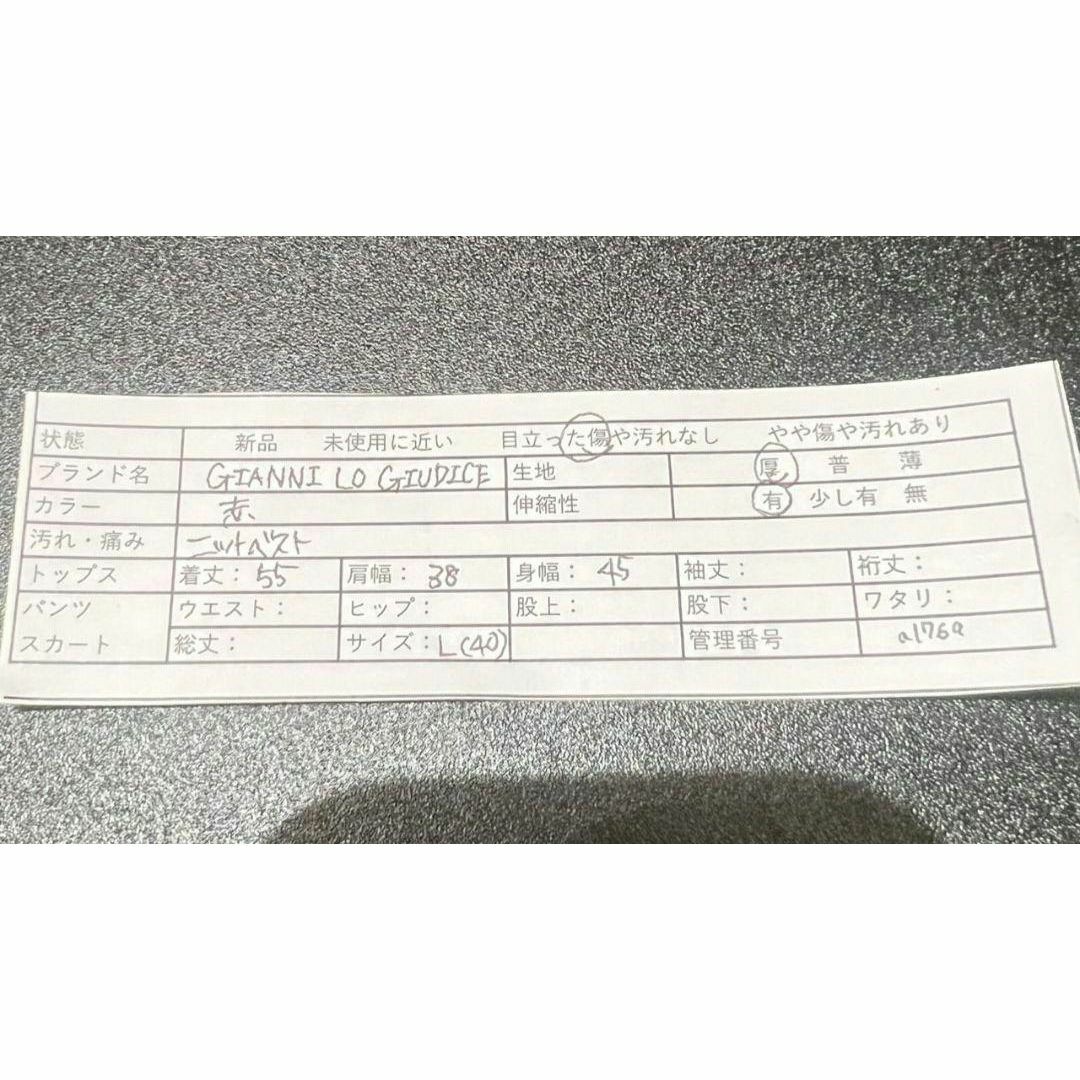 状態 新品 未使用に近い 目立った傷や汚れなし やや傷や汚れあり
ブランド名 GIANNI LO GIUDICE 生地 厚 普 薄
カラー 赤 伸縮性 有 少し有 無
汚れ・痛み ニットベスト
トップス 着丈：55 肩幅：38 身幅：45 袖丈： 裄丈：
パンツ ウエスト： ヒップ： 股上： 股下： ワタリ：
スカート 総丈： サイズ：L(40) 管理番号 a176a